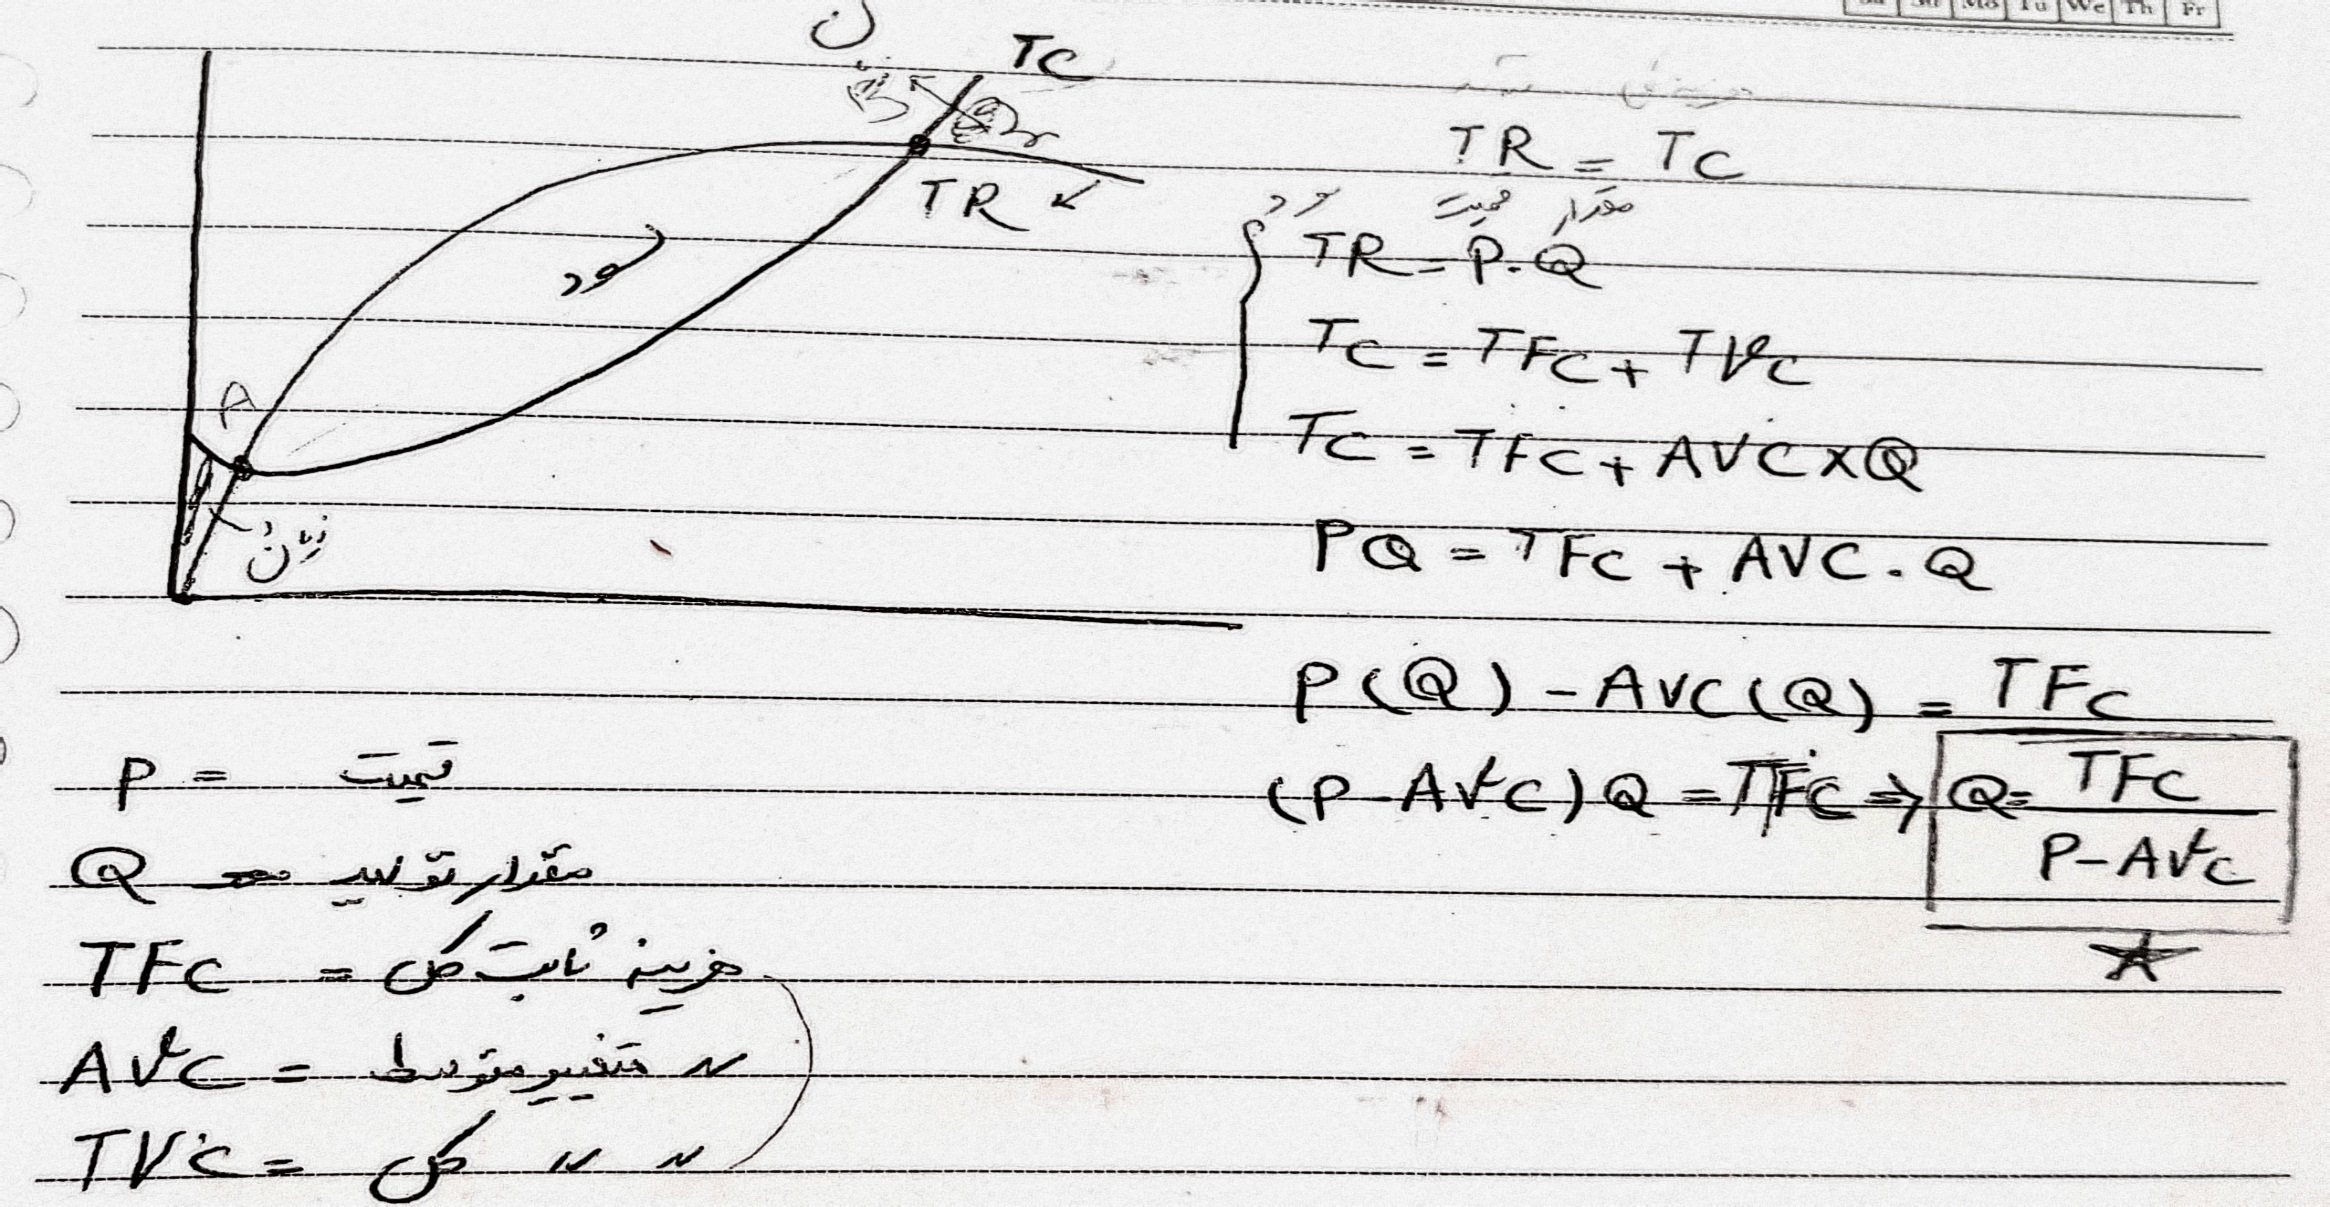 Sa Su Mo Tu We Th Fr
TC
TR
سود
A
زیان
TR = TC
قیمت مقدار
TR = P.Q
TC = TFC + TVC
TC = TFC + AVC x Q
PQ = TFC + AVC . Q
P(Q) - AVC(Q) = TFC
(P - AVC) Q = TFC ⇒ Q = TFC / P - AVC
P = قیمت
Q = مقدار تولید
TFC = هزینه ثابت کل
AVC = 〃 متغییر متوسط
TVC = 〃 〃 کل